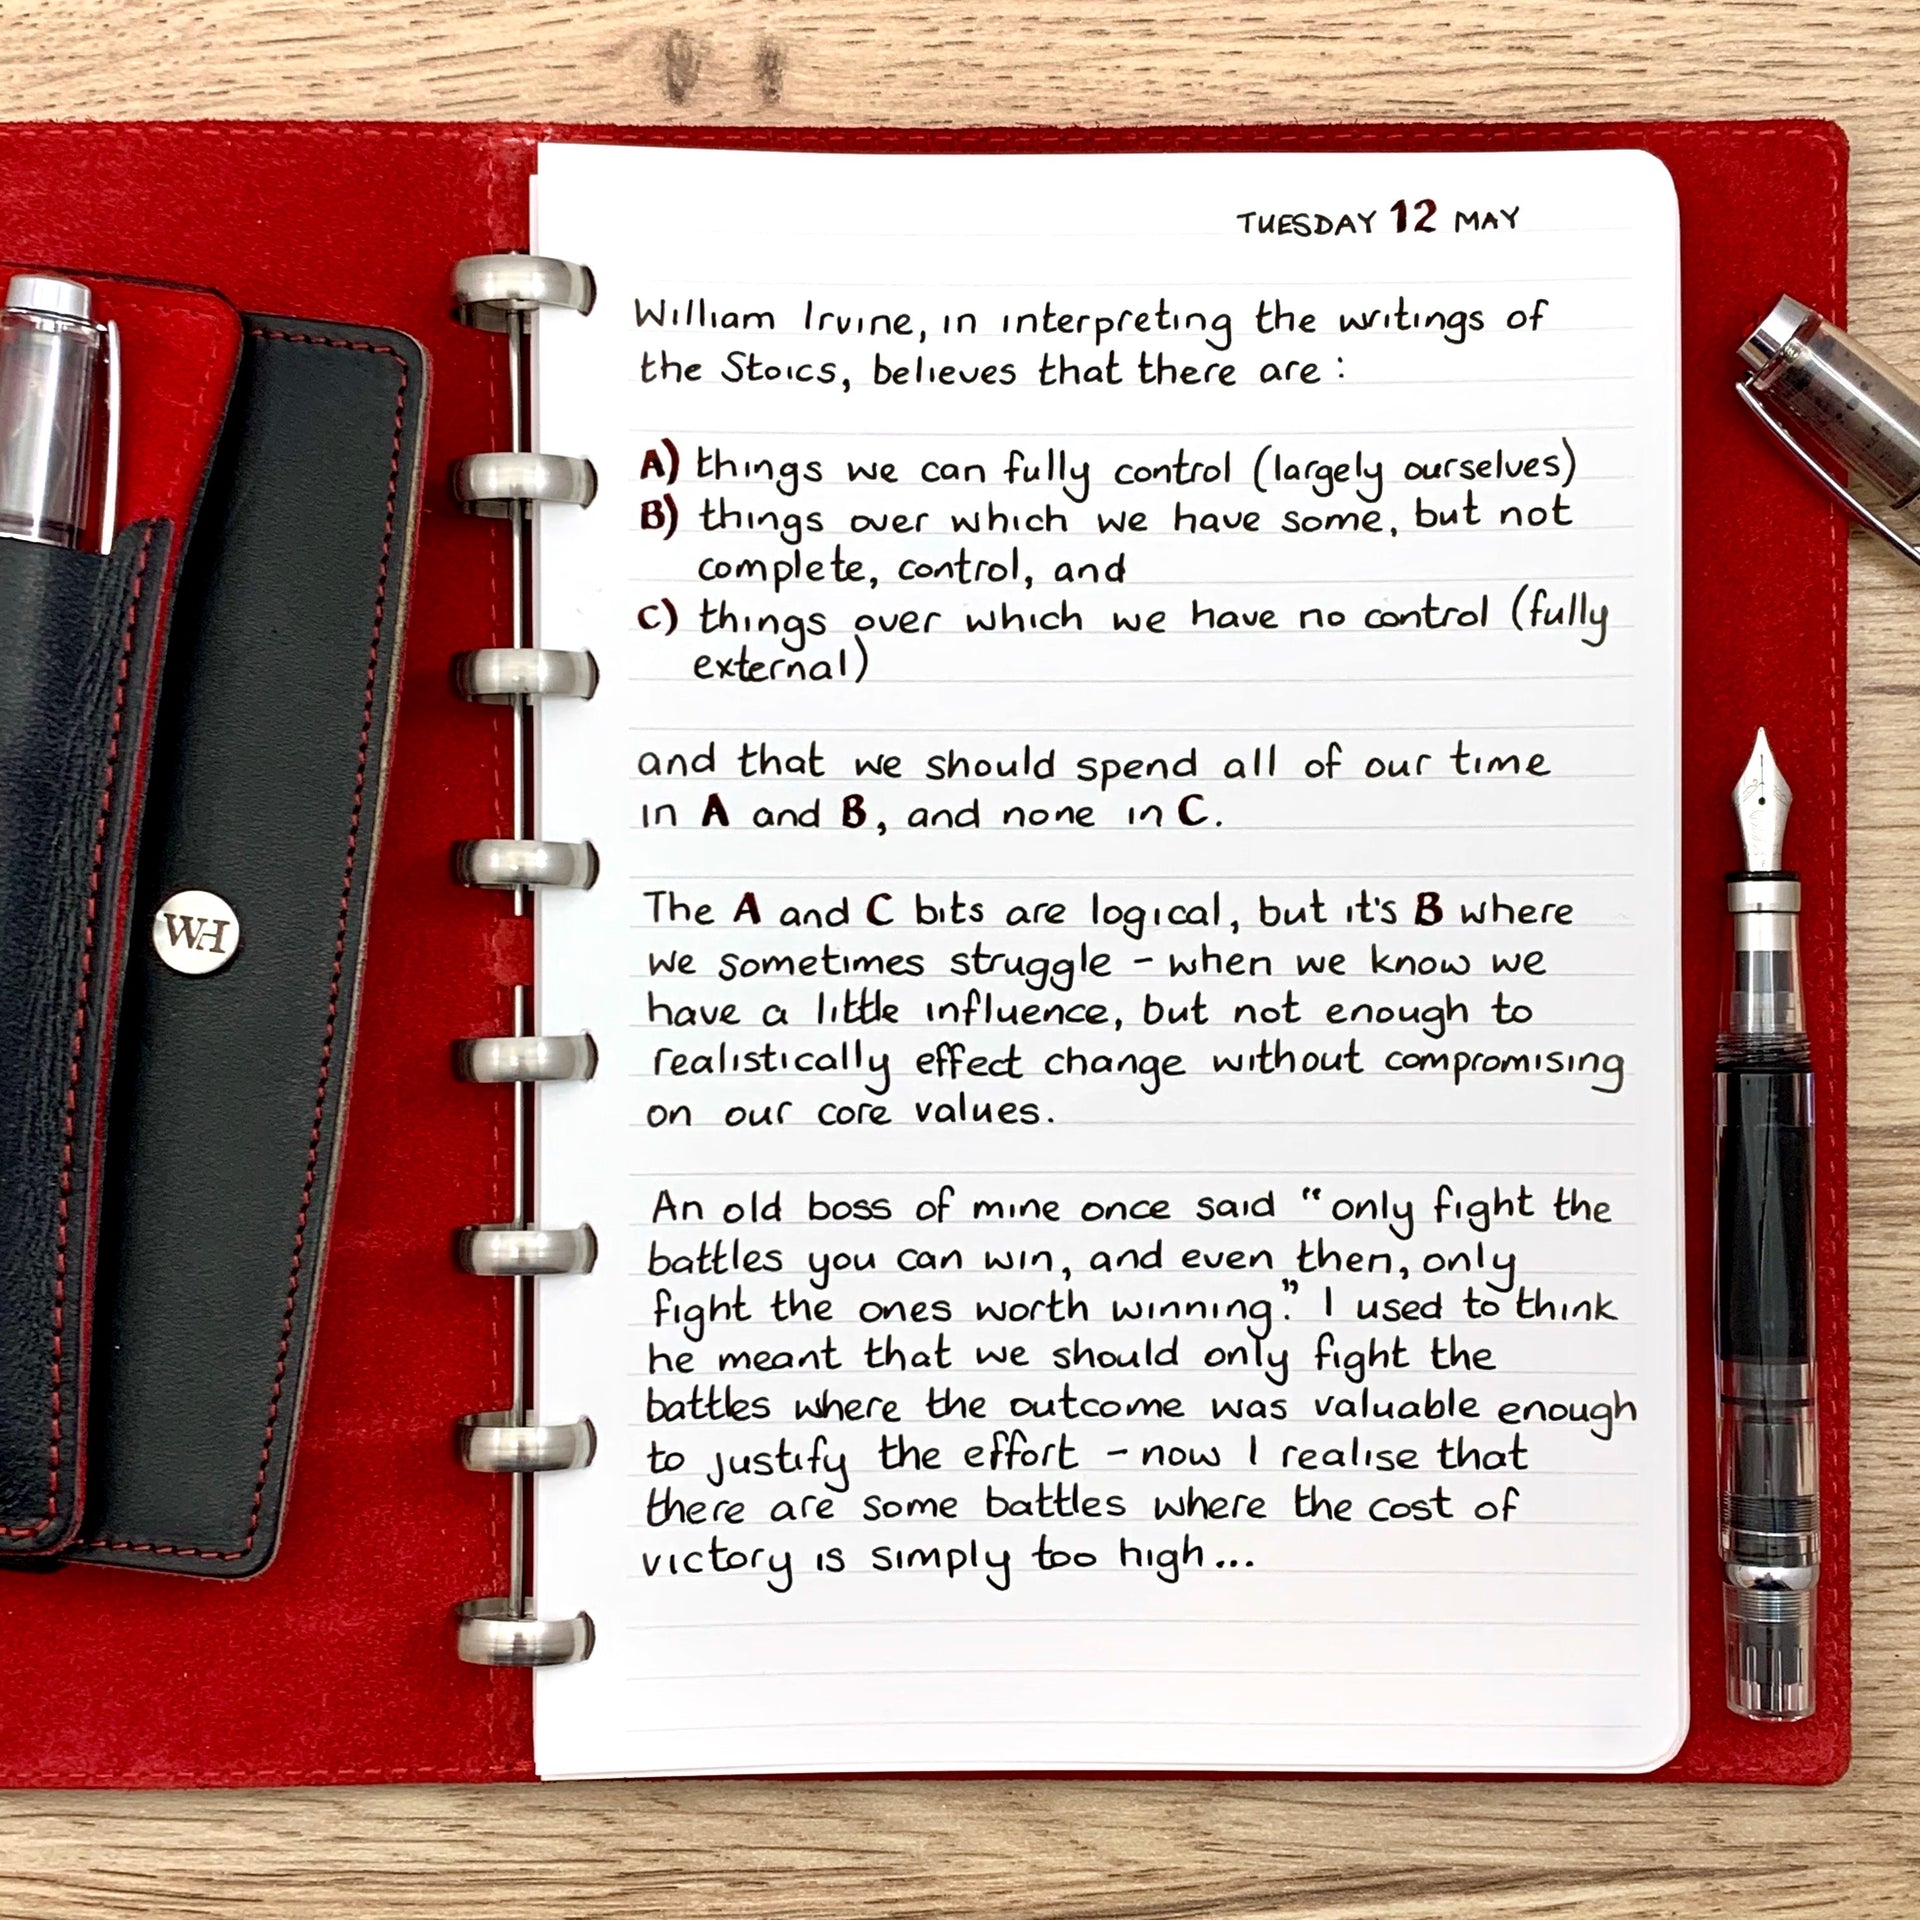 TUESDAY 12 MAY
William Irvine, in interpreting the writings of
the Stoics, believes that there are :
A) things we can fully control (largely ourselves)
B) things over which we have some, but not
complete, control, and
C) things over which we have no control (fully
external)
and that we should spend all of our time
in A and B, and none in C.
The A and C bits are logical, but it's B where
we sometimes struggle - when we know we
have a little influence, but not enough to
realistically effect change without compromising
on our core values.
An old boss of mine once said "only fight the
battles you can win, and even then, only
fight the ones worth winning." I used to think
he meant that we should only fight the
battles where the outcome was valuable enough
to justify the effort - now I realise that
there are some battles where the cost of
victory is simply too high...
WH